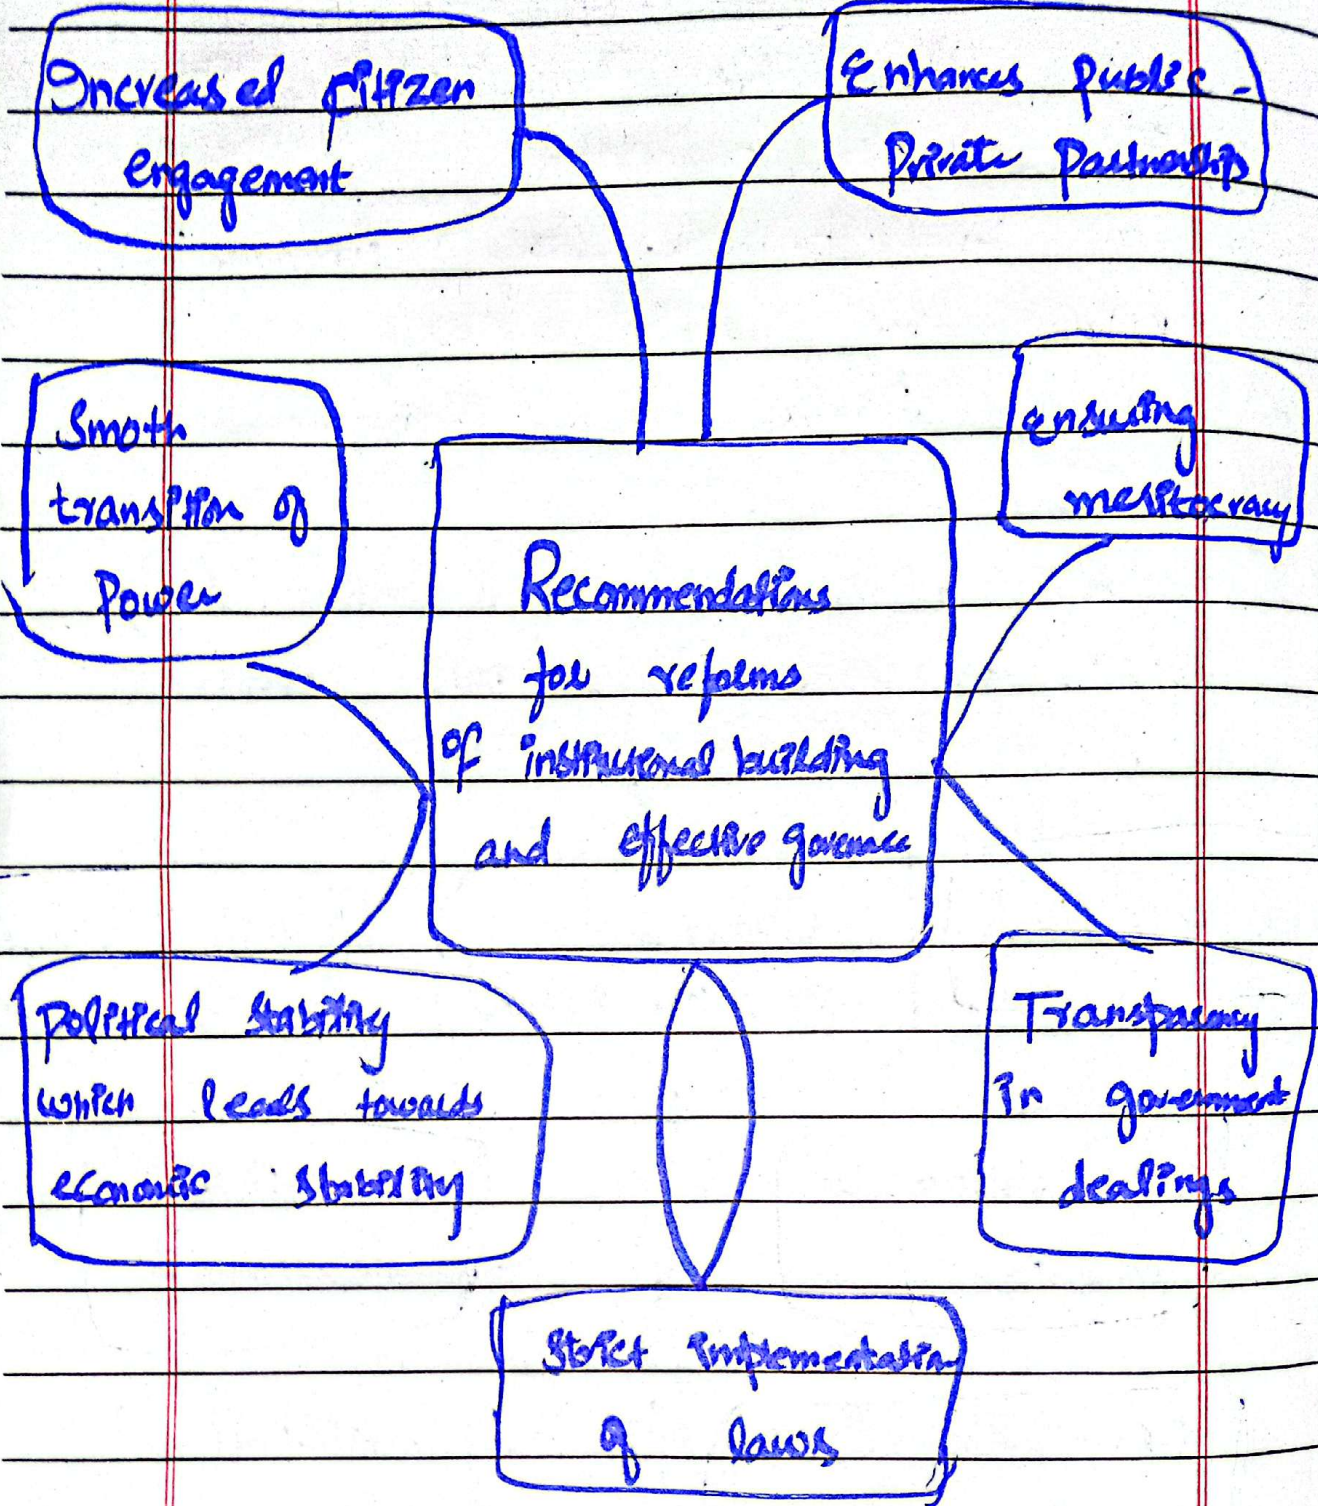 Increased citizen
engagement
Enhances Public-
Private Partnership
Smoth
transition of
Power
ensuring
meritocracy
Recommendations
for reforms
of institutional building
and effective goverance
Political stability
which leads towards
economic stability
Transparency
in government
dealings
Strict implementation
of laws